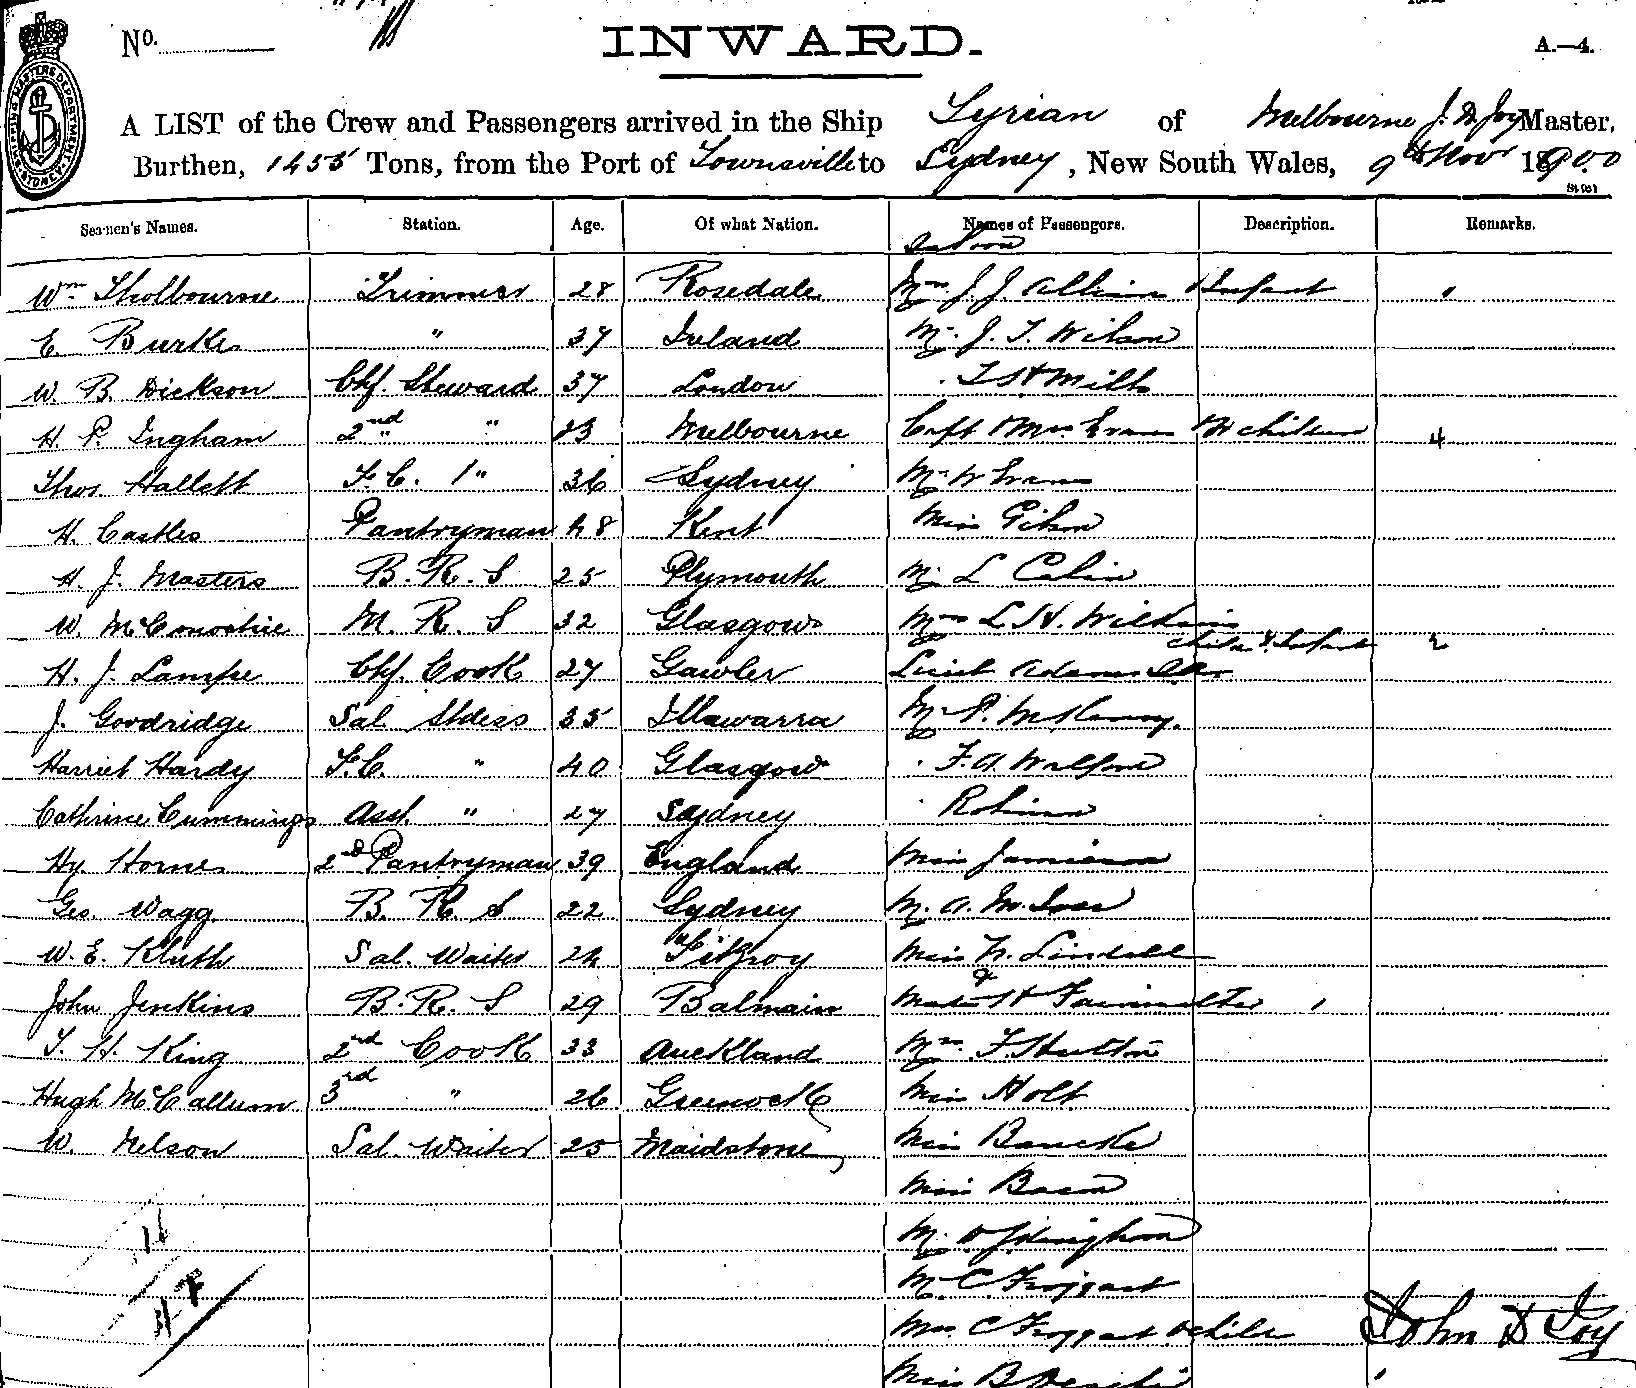 No.
INWARD.
A.—4.
A LIST of the Crew and Passengers arrived in the Ship Syrian of Melbourne J. D. Joy Master,
Burthen, 1455 Tons, from the Port of Townsville to Sydney, New South Wales, 9th Nov 1900
Seamen's Names. Station. Age. Of what Nation. Names of Passengers. Description. Remarks.
Saloon
Wm Sholbourne Trimmer 28 Rosedale Mrs J. J. & Infant
E. Burke " 37 Ireland Mr J. T. Wilson
W. B. Dickson Chf. Steward 37 London T H Mills
H. P. Ingham 2nd " 23 Melbourne Capt & Mrs Evans & 4 children 4
Thos. Hallett F.C. " 36 Sydney Mr W Evans
H. Castles Pantryman 48 Kent Miss
H. J. Masters B. R. S 25 Plymouth Mr L
W. McConochie M. R. S 32 Glasgow Mrs L. H. Wilkins
child & Infant 2
H. J. Lampe Chf. Cook 27 Gawler Lieut Adams
J. Goodridge Sal Stdess 35 Illawarra Mr P. McKenny
Harriet Hardy F.C. " 40 Glasgow F. A. Walfore
Cathrine Cummings Asst. " 27 Sydney
Hy. Horne 2nd Pantryman 39 England Miss Jamieson
Geo. Wagg B. R. S 22 Sydney Mr A.
W. E. Kluth Sal. Waiter 24 Fitzroy Miss Lindall
&
John Jenkins B. R. S 29 Balmain H
T. H. King 2nd Cook 33 Auckland Mrs F. Hutton
Hugh McCallum 3rd " 26 Greenock Miss Holt
W. Nelson Sal. Waiter 25 Maidstone Miss
Miss Bacon
Mr
Mr C Froggart
11
47
Mrs C Froggart & child John D Joy
Miss B